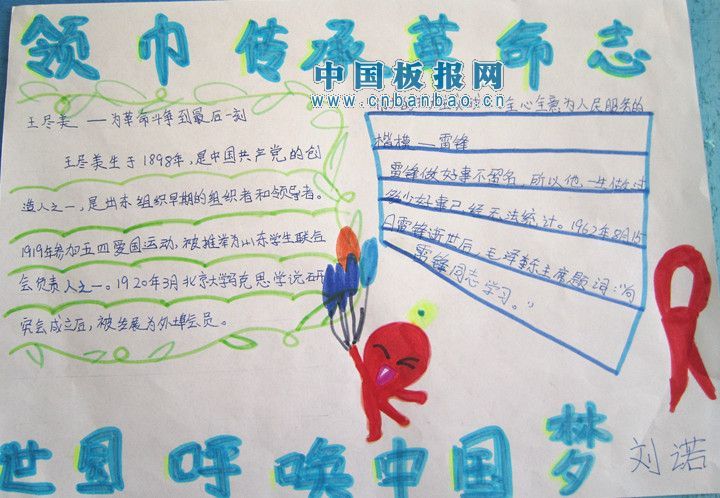 领巾传承革命志
中国板报网
www.cnbanbao.cn
王尽美 —为革命斗争到最后一刻
王尽美生于1898年,是中国共产党的创
造人之一,是山东组织早期的组织者和领导者。
1919年参加五四爱国运动,被推举为山东学生联合
会负责人之一。1920年3月北京大学马克思学说研
究会成立后,被发展为外埠会员。
全心全意为人民服务的
楷模—雷锋
雷锋做好事不留名,所以他一生做过
多少好事已经无法统计。1962年8月15
日雷锋逝世后,毛泽东主席题词:"向
雷锋同志学习。"
世国呼唤中国梦
刘诺